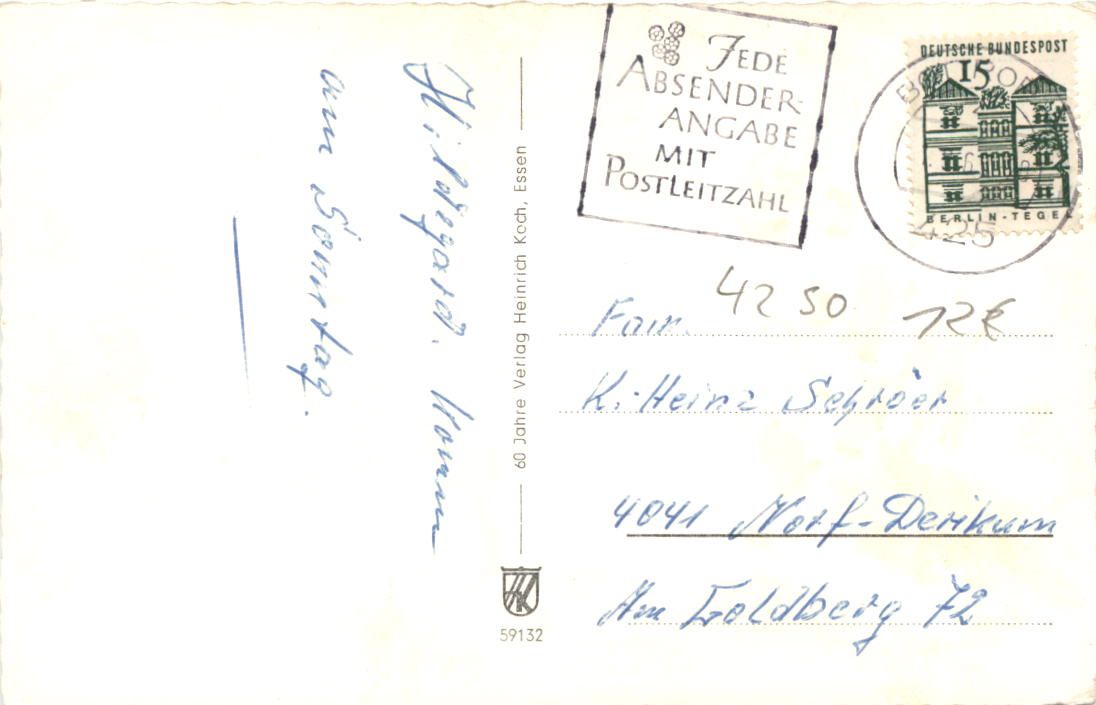 Hildegard. Komm
am Sonntag.
60 Jahre Verlag Heinrich Koch, Essen
HK
59132
JEDE
ABSENDER-
ANGABE
MIT
POSTLEITZAHL
DEUTSCHE BUNDESPOST
15
BERLIN-TEGEL
425
4250 12€
Fam.
K.-Heinz Schröer
4041 Norf-Derikum
Am Goldberg 72